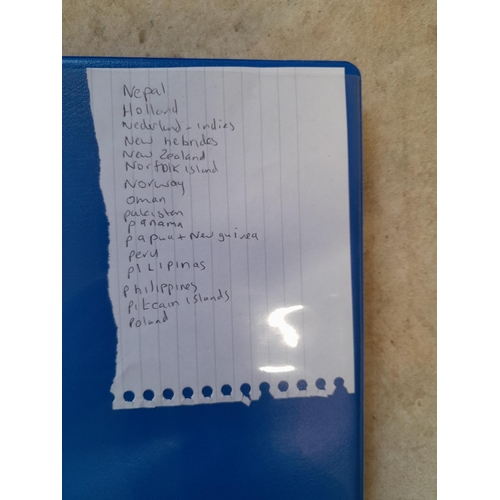 Nepal
Holland
Nederland-indies
New Hebrides
New Zealand
Norfolk island
Norway
oman
pakistan
panama
papua + New guinea
peru
pILIpinas
philippines
pitcain islands
poland